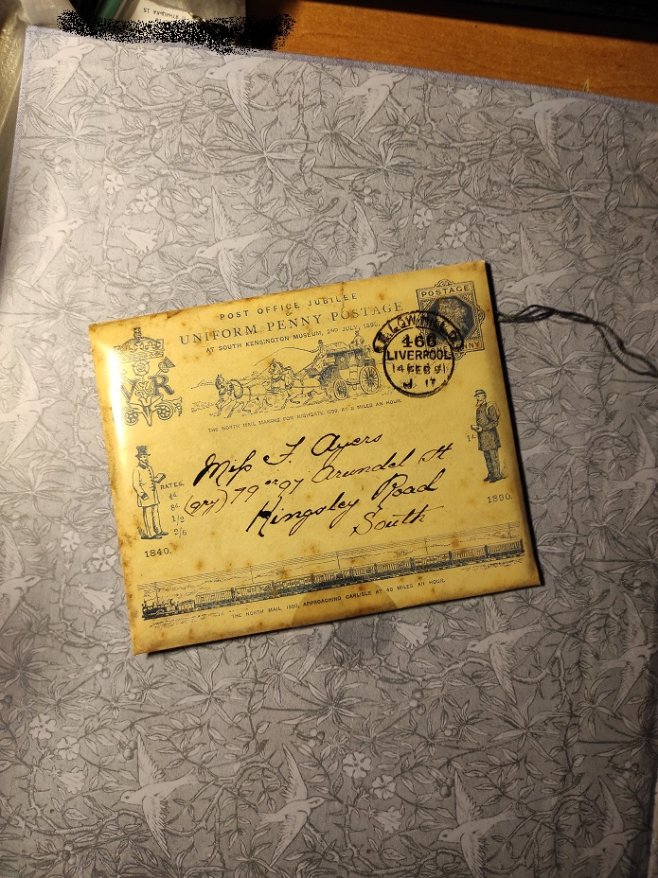 POST OFFICE JUBILEE
UNIFORM PENNY POSTAGE
AT SOUTH KENSINGTON MUSEUM, 2ND JULY, 1890.
V R
POSTAGE
PENNY
LOW HILL
466
LIVERPOOL
14 FEB 91
THE NORTH MAIL MAKING FOR HIGHGATE, 1790, AT 8 MILES AN HOUR.
Miss F. Ayers
(qry) 79 or 97 Arundel St
Kingsley Road
South
RATES.
4d
8d
1/2
2/6
1840.
1d
1890.
THE NORTH MAIL, 1890, APPROACHING CARLISLE AT 48 MILES AN HOUR.